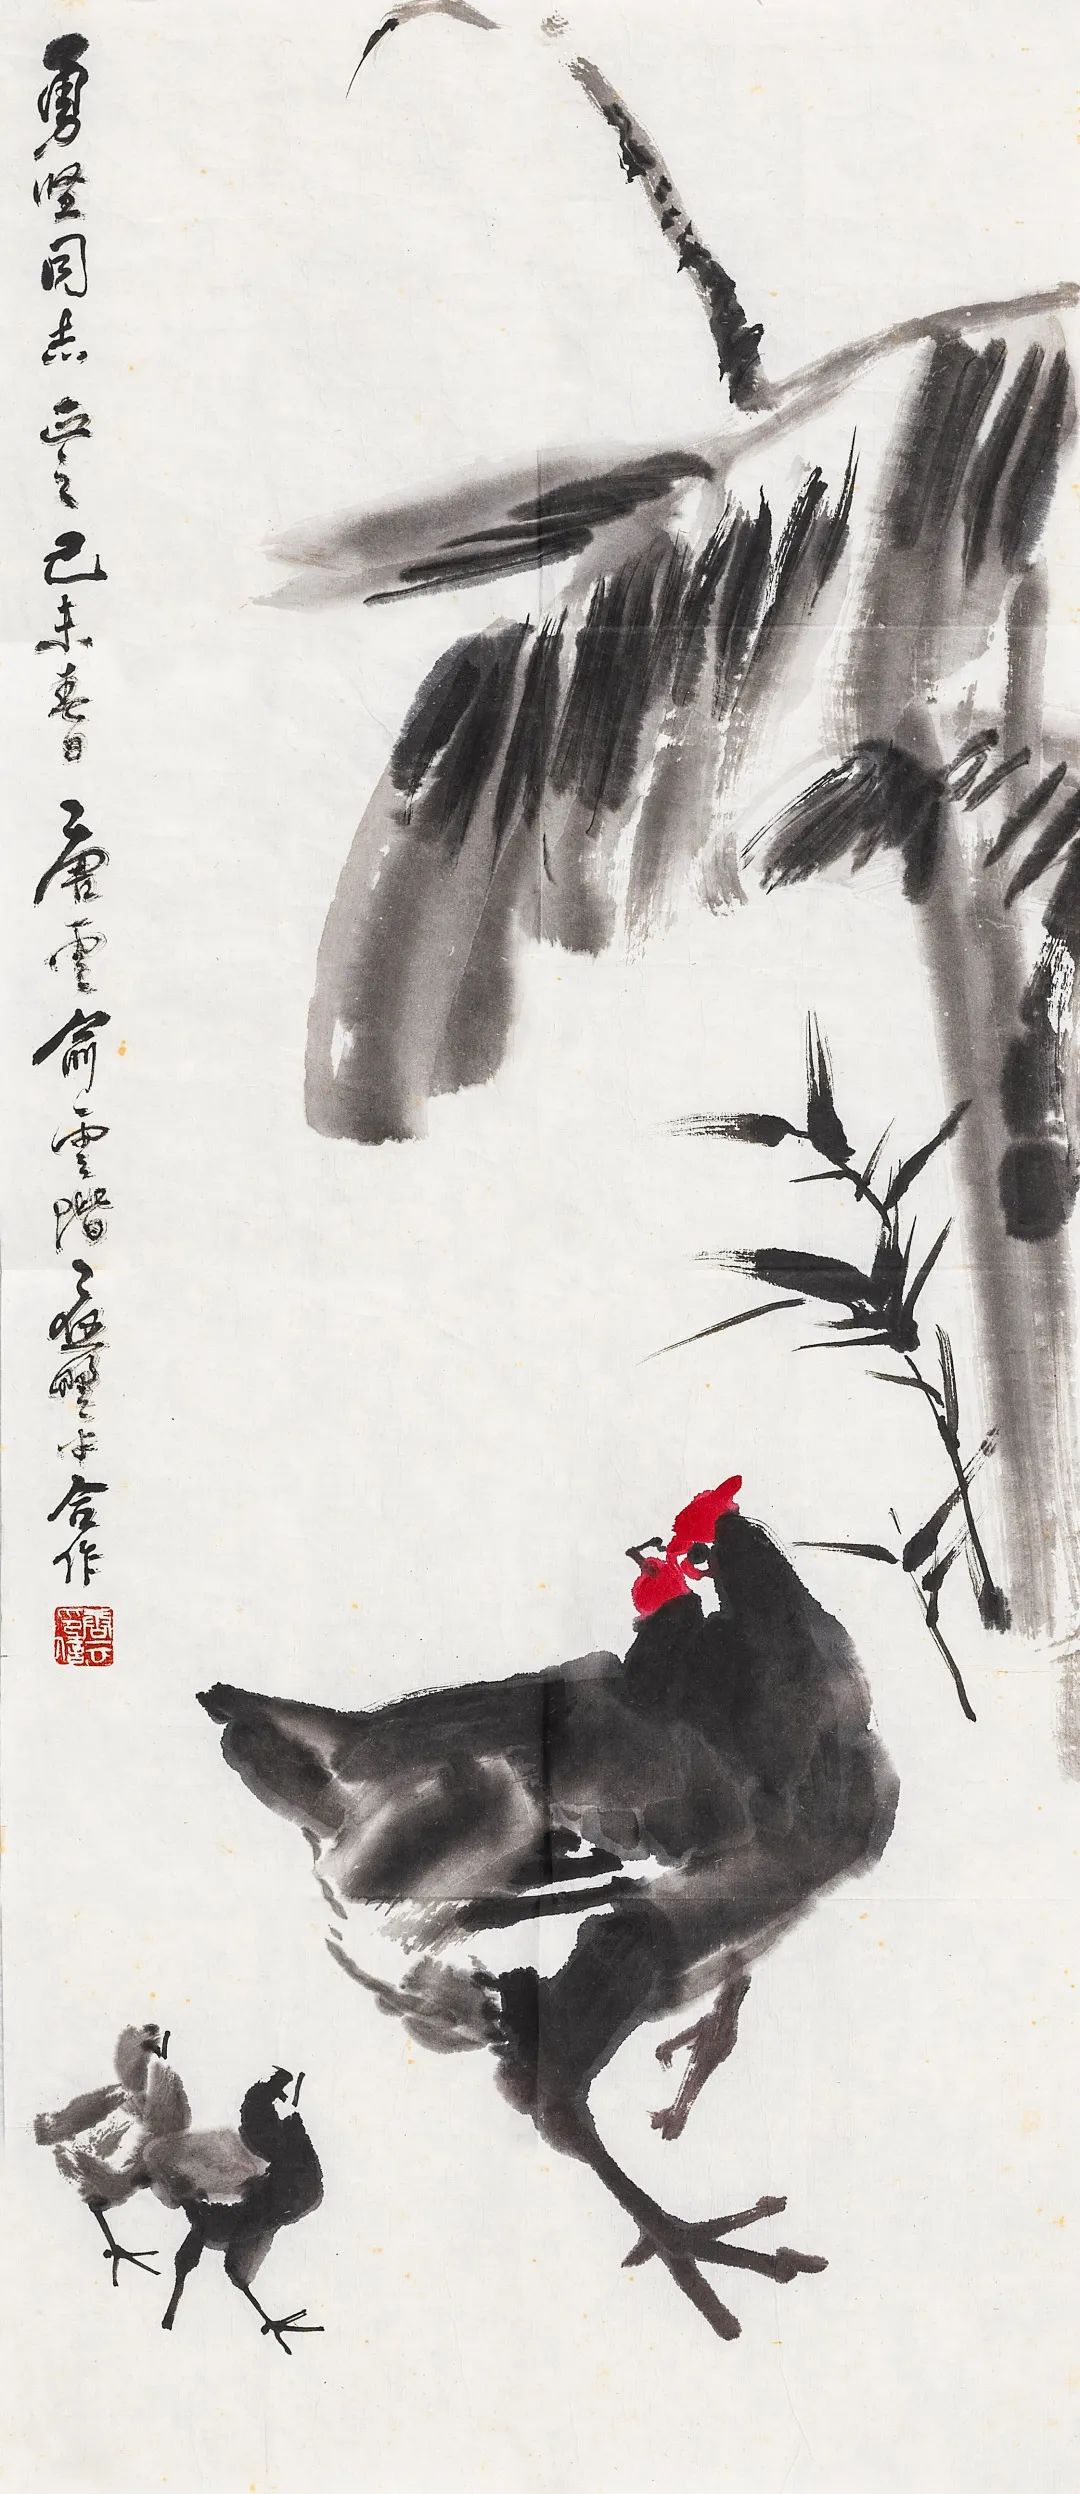 勇坚同志正之己未春日唐雲俞雲階合作
唐云印信